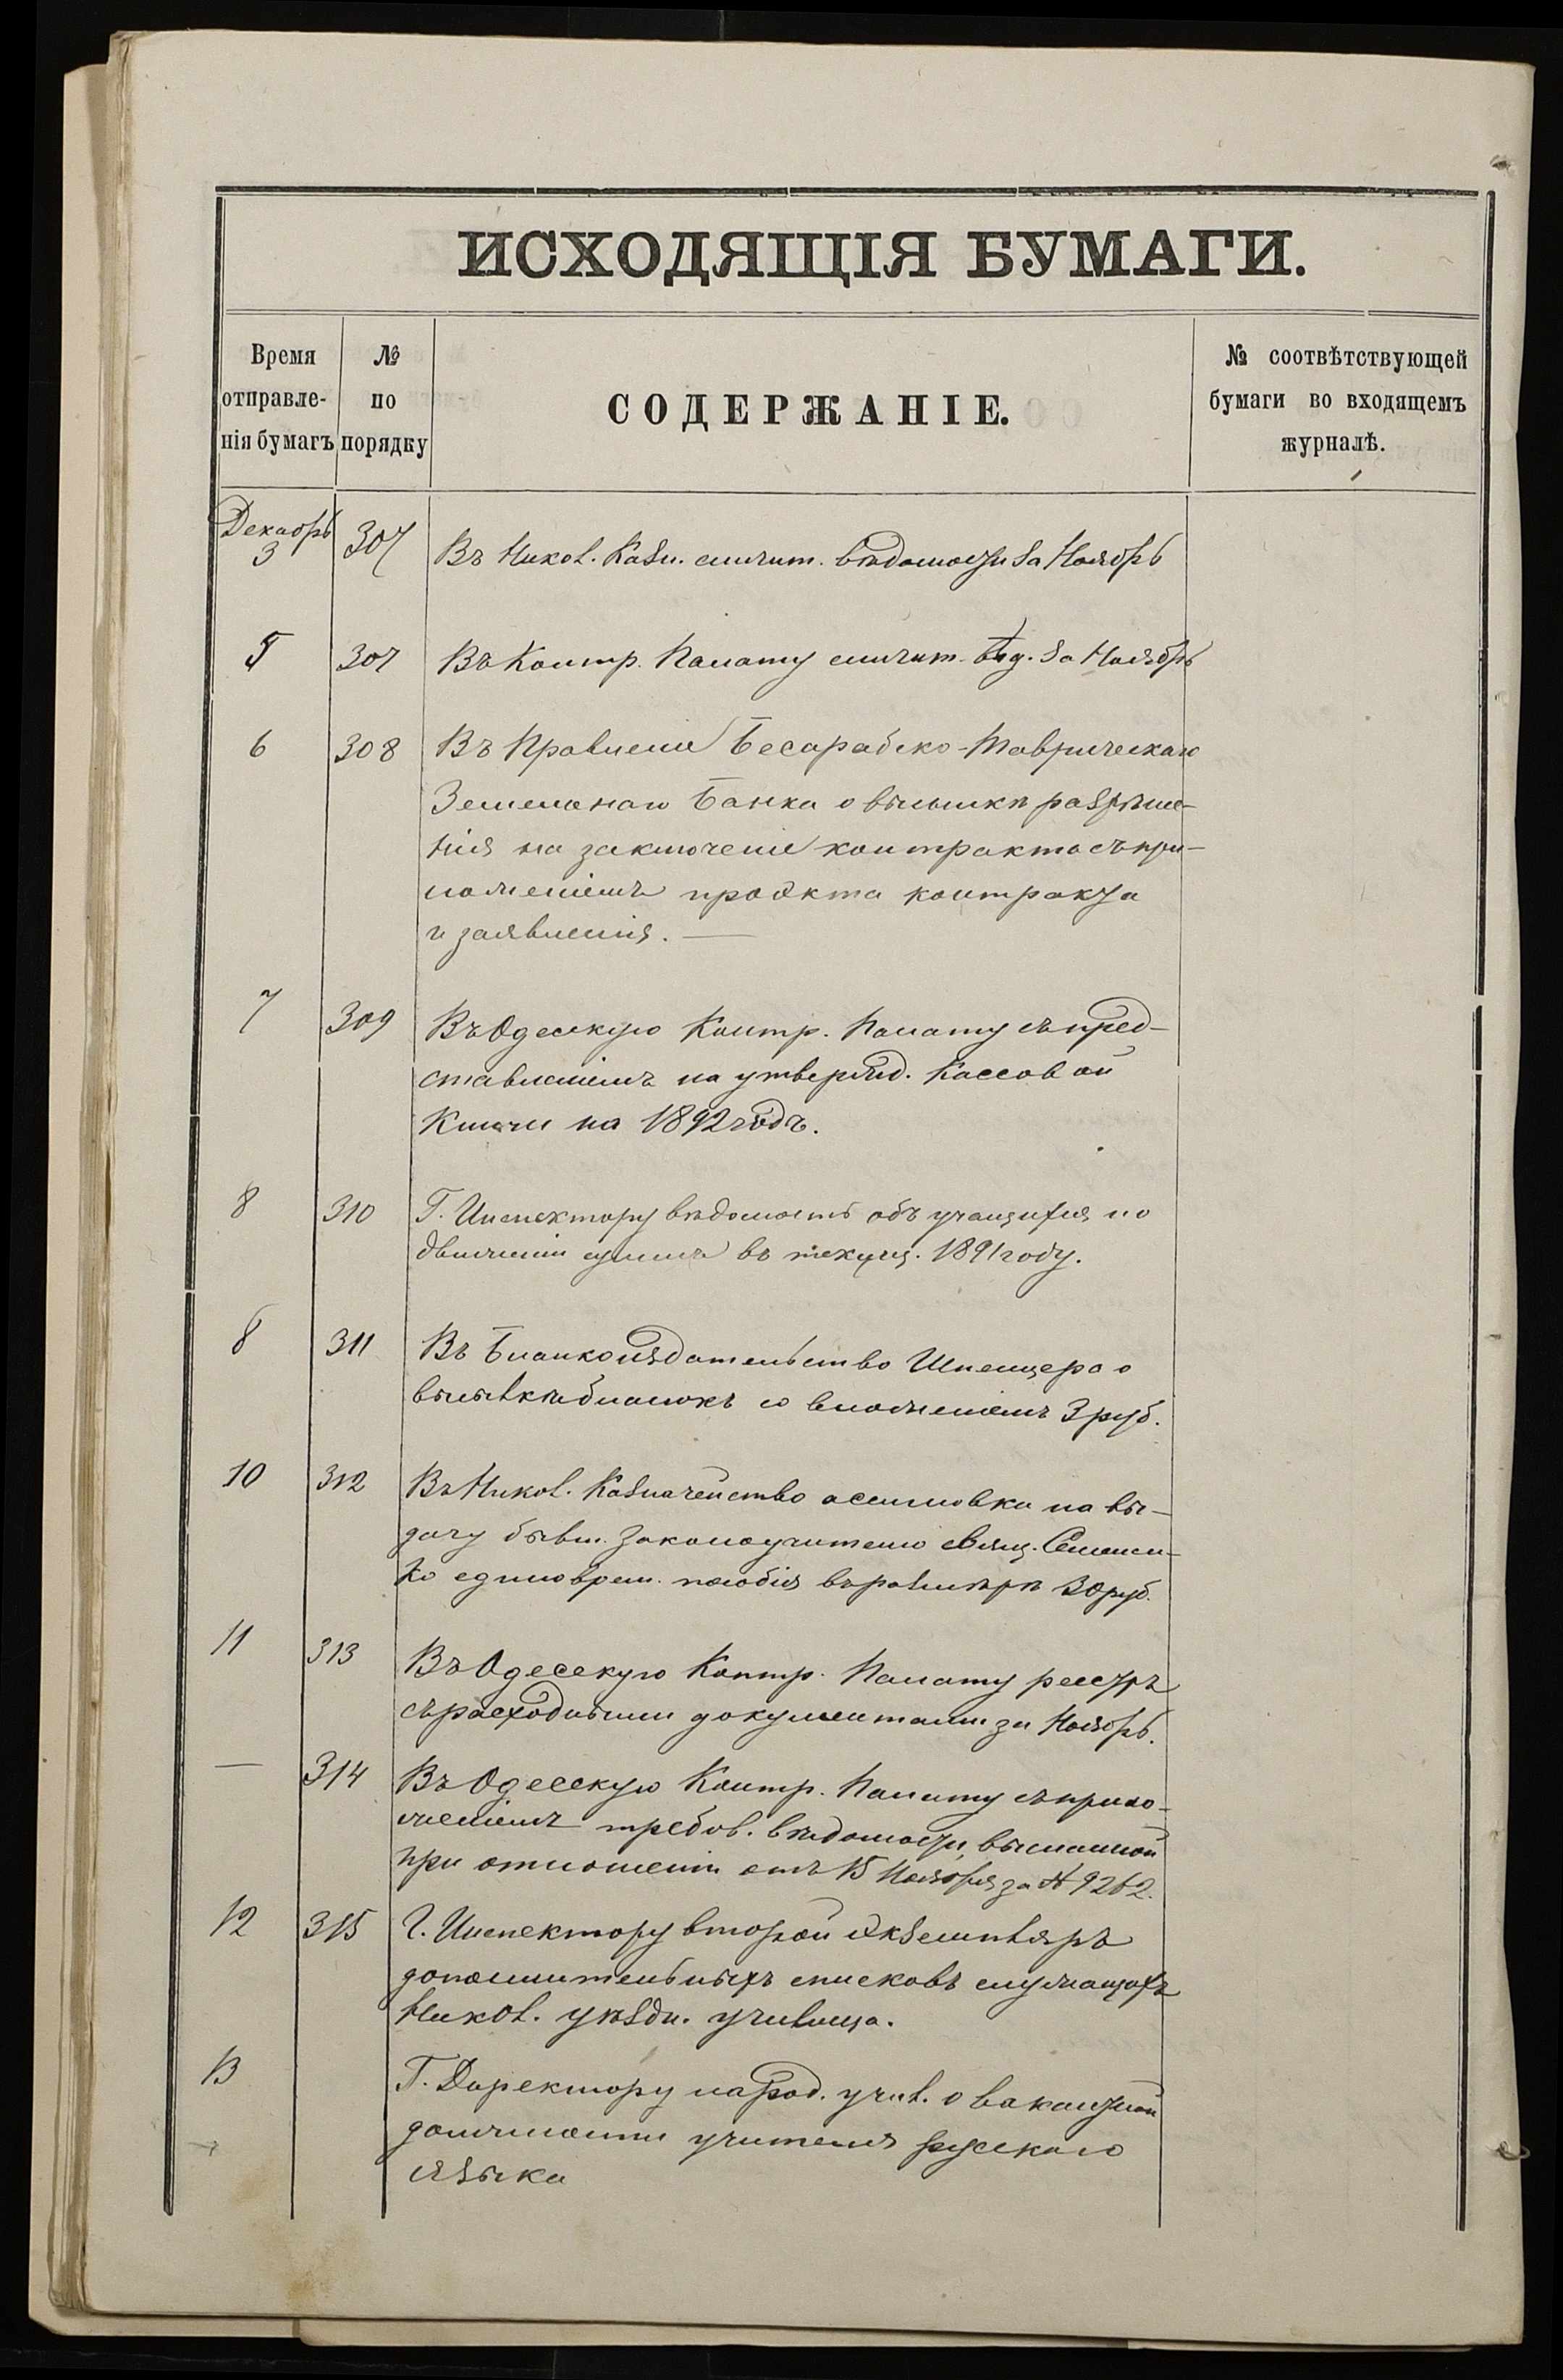 ИСХОДЯЩІЯ БУМАГИ.
Время отправле- нія бумагъ
№ по порядку
СОДЕРЖАНІЕ.
№ соотвѣтствующей бумаги во входящемъ журналѣ.
Декабрь 3 307 Въ Никол. Казн. сличит. вѣдомости за Ноябрь
5 307 Въ Контр. Палату сличит. вѣд. за Ноябрь
6 308 Въ Правленіе Бесарабско-Таврическаго
Земельнаго Банка о высылкѣ разрѣше-
нія на заключеніе контракта съ при-
ложеніемъ проэкта контракта
и заявленія. —
7 309 Въ Одесскую Контр. Палату съ пред-
ставленіемъ на утвержд. Кассовой
Книги на 1892 годъ.
8 310 Г. Инспектору вѣдомость объ учащихся по
движеніи суммъ въ текущ. 1891 году.
8 311 Въ Бланкоиздательство Шпенцера о
высылкѣ бланокъ со вложеніемъ 3 руб.
10 312 Въ Никол. Казначейство асигновка на вы-
дачу бывш. Законоучителю свящ. Семенен-
ко единоврем. пособія въ размѣрѣ 30 руб.
11 313 Въ Одесскую Контр. Палату реестръ
съ расходными документами за Ноябрь.
— 314 Въ Одесскую Контр. Палату съ прило-
женіемъ требов. вѣдомости, высланной
при отношеніи отъ 15 Ноября за № 9262.
12 315 Г. Инспектору второй экземпляръ
дополнительныхъ списковъ служащихъ
Никол. уѣздн. училища.
13 Г. Директору народ. учил. о вакантной
должности учителя русскаго
языка